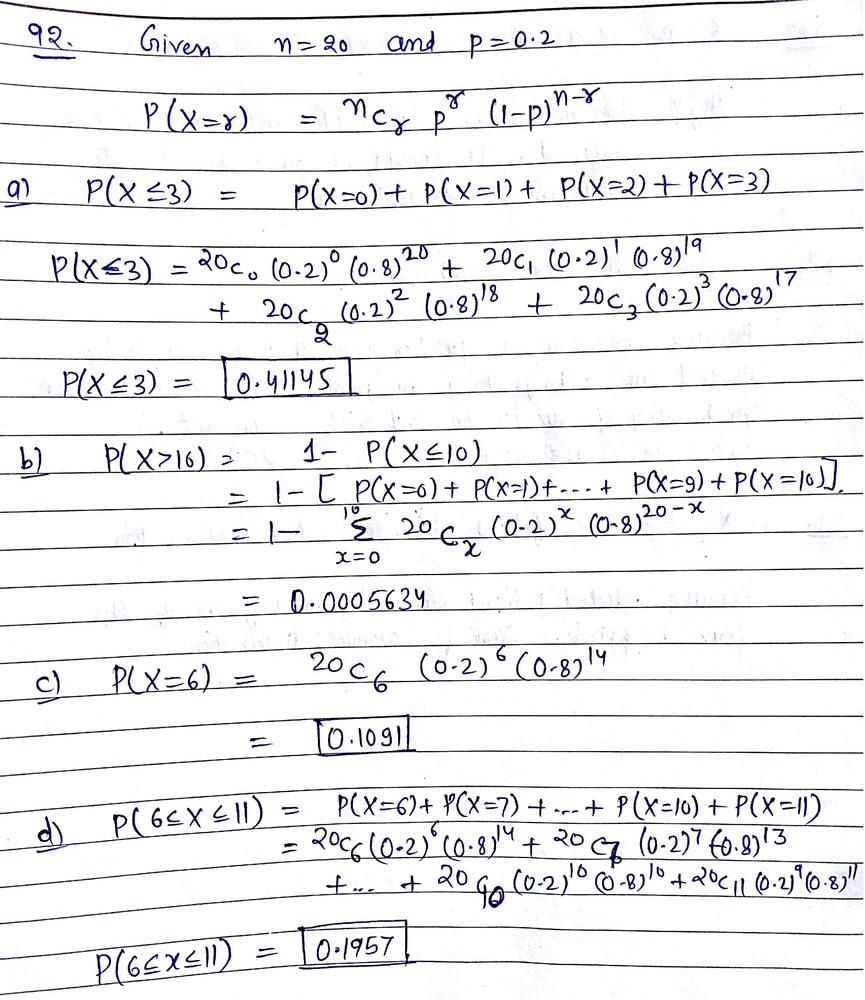 92. Given n=20 and p=0.2
P(X=r) = ⁿCᵣ pʳ (1-p)ⁿ⁻ʳ
a) P(X≤3) = P(X=0) + P(X=1) + P(X=2) + P(X=3)
P(X≤3) = 20C₀ (0.2)⁰ (0.8)²⁰ + 20C₁ (0.2)¹ (0.8)¹⁹
+ 20C₂ (0.2)² (0.8)¹⁸ + 20C₃ (0.2)³ (0.8)¹⁷
P(X≤3) = 0.41145
b) P(X>10) = 1- P(X≤10)
= 1-[ P(X=0) + P(X=1)+...+ P(X=9) + P(X=10)].
= 1- Σ 20Cₓ (0.2)ˣ (0.8)²⁰⁻ˣ
10
x=0
= 0.0005634
c) P(X=6) = 20C₆ (0.2)⁶ (0.8)¹⁴
= 0.1091
d) P(6≤X≤11) = P(X=6)+ P(X=7) +...+ P(X=10) + P(X=11)
= 20C₆ (0.2)⁶ (0.8)¹⁴ + 20C₇ (0.2)⁷ (0.8)¹³
+... + 20C₁₀ (0.2)¹⁰ (0.8)¹⁰ + 20C₁₁ (0.2)⁹ (0.8)¹¹
P(6≤X≤11) = 0.1957